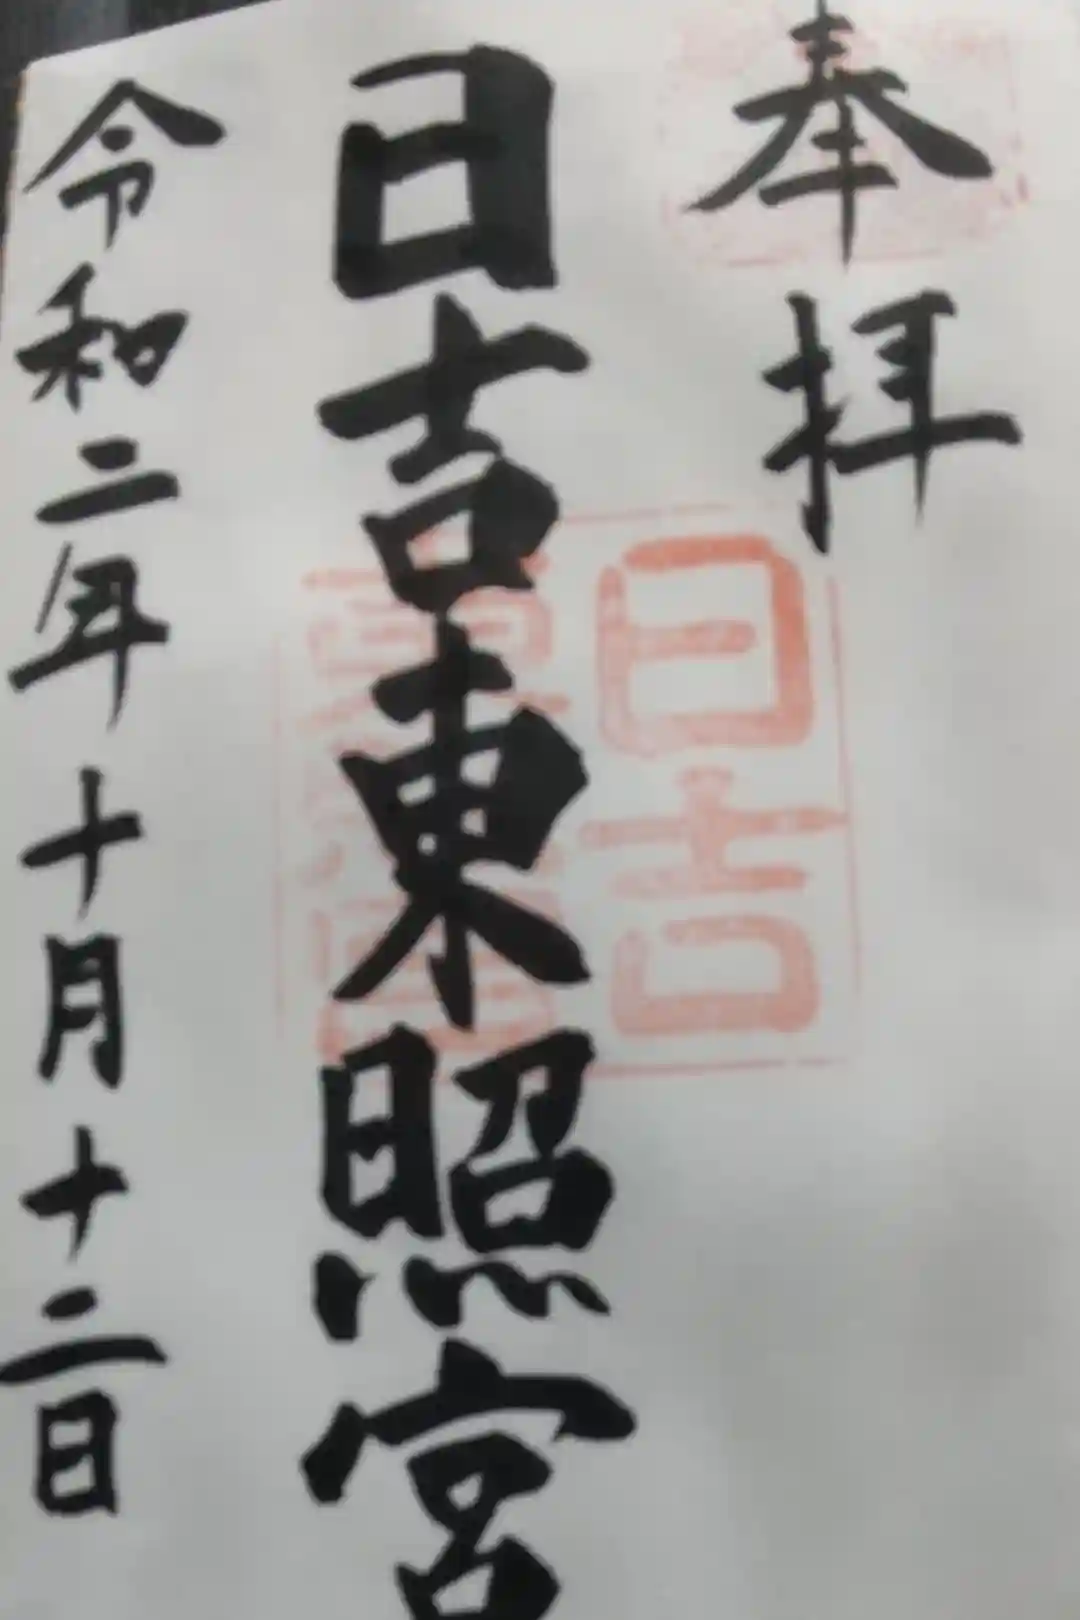 奉拝
日吉
日吉東照宮
令和二年十月十二日